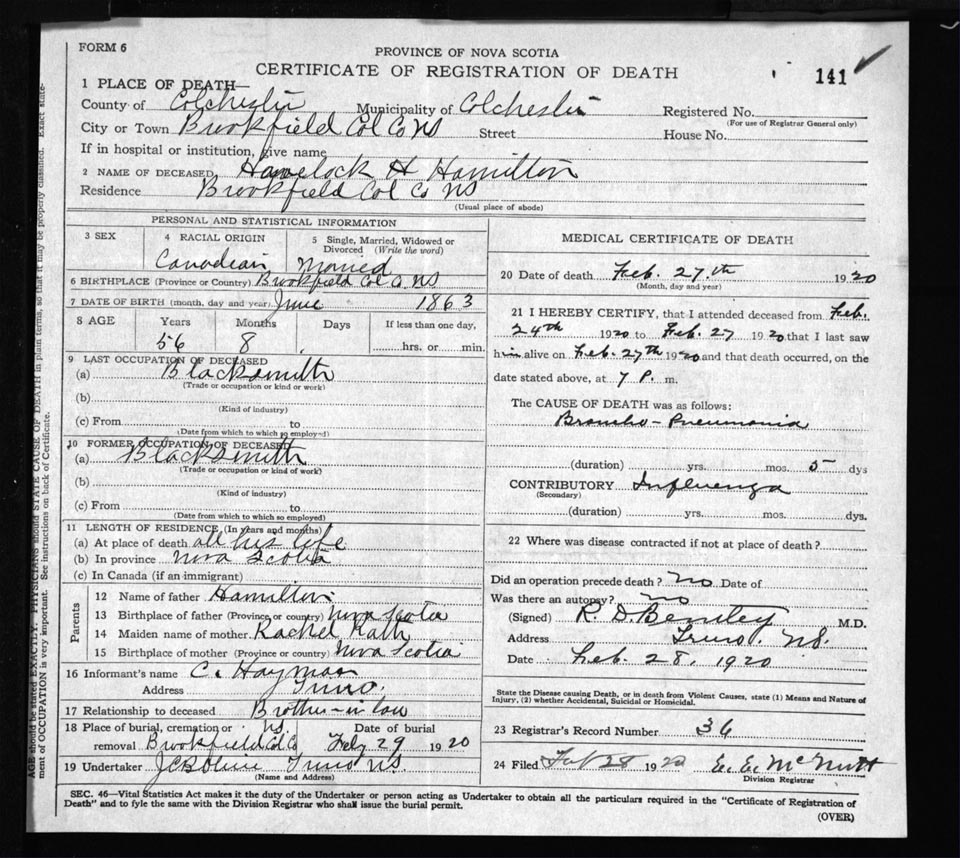 FORM 6
PROVINCE OF NOVA SCOTIA
CERTIFICATE OF REGISTRATION OF DEATH
141
1 PLACE OF DEATH—
County of Colchester Municipality of Colchester Registered No.
(For use of Registrar General only)
City or Town Brookfield Col Co NS Street House No.
If in hospital or institution, give name
2 NAME OF DECEASED Havelock H Hamilton
Residence Brookfield Col Co NS
(Usual place of abode)
PERSONAL AND STATISTICAL INFORMATION
3 SEX
4 RACIAL ORIGIN
Canadian
5 Single, Married, Widowed or
Divorced (Write the word)
Married
6 BIRTHPLACE (Province or Country) Brookfield Col Co NS
7 DATE OF BIRTH (month, day and year) June 1863
8 AGE Years Months Days If less than one day,
56 8 hrs. or min.
9 LAST OCCUPATION OF DECEASED
(a) Blacksmith
(Trade or occupation or kind or work)
(b)
(Kind of industry)
(c) From to
(Date from which to which so employed)
10 FORMER OCCUPATION OF DECEASED
(a) Blacksmith
(Trade or occupation or kind of work)
(b)
(Kind of industry)
(c) From to
(Date from which to which so employed)
11 LENGTH OF RESIDENCE (In years and months)
(a) At place of death all his life
(b) In province Nova Scotia
(c) In Canada (if an immigrant)
Parents
12 Name of father Hamilton
13 Birthplace of father (Province or country) Nova Scotia
14 Maiden name of mother Rachel
15 Birthplace of mother (Province or country) Nova Scotia
16 Informant's name C. Hayman
Address Truro.
17 Relationship to deceased Brother-in law
18 Place of burial, cremation or NS Date of burial
removal Brookfield Col Co Feby 29 1920
19 Undertaker Truro N.S.
(Name and Address)
MEDICAL CERTIFICATE OF DEATH
20 Date of death Feb. 27.th 1920
(Month, day and year)
21 I HEREBY CERTIFY, that I attended deceased from Feb.
24th 1920 to Feb. 27 1920 that I last saw
him alive on Feb. 27th 1920 and that death occurred, on the
date stated above, at 7 P. m.
The CAUSE OF DEATH was as follows:
Broncho-Pneumonia
(duration) yrs. mos. 5 dys
CONTRIBUTORY Influenza
(Secondary)
(duration) yrs. mos. dys.
22 Where was disease contracted if not at place of death?
Did an operation precede death? no Date of
Was there an autopsy? no
(Signed) R. D. Bentley M.D.
Address Truro. NS.
Date Feb. 28. 1920
State the Disease causing Death, or in death from Violent Causes, state (1) Means and Nature of
Injury, (2) whether Accidental, Suicidal or Homicidal.
23 Registrar's Record Number 36
24 Filed Feb 28 1920 E. E. McNutt
Division Registrar
SEC. 46—Vital Statistics Act makes it the duty of the Undertaker or person acting as Undertaker to obtain all the particulars required in the "Certificate of Registration of
Death" and to fyle the same with the Division Registrar who shall issue the burial permit.
(OVER)
AGE should be stated EXACTLY. PHYSICIANS should STATE CAUSE OF DEATH in plain terms, so that it may be properly classified. Exact state-
ment of OCCUPATION is very important. See instructions on back of Certificate.